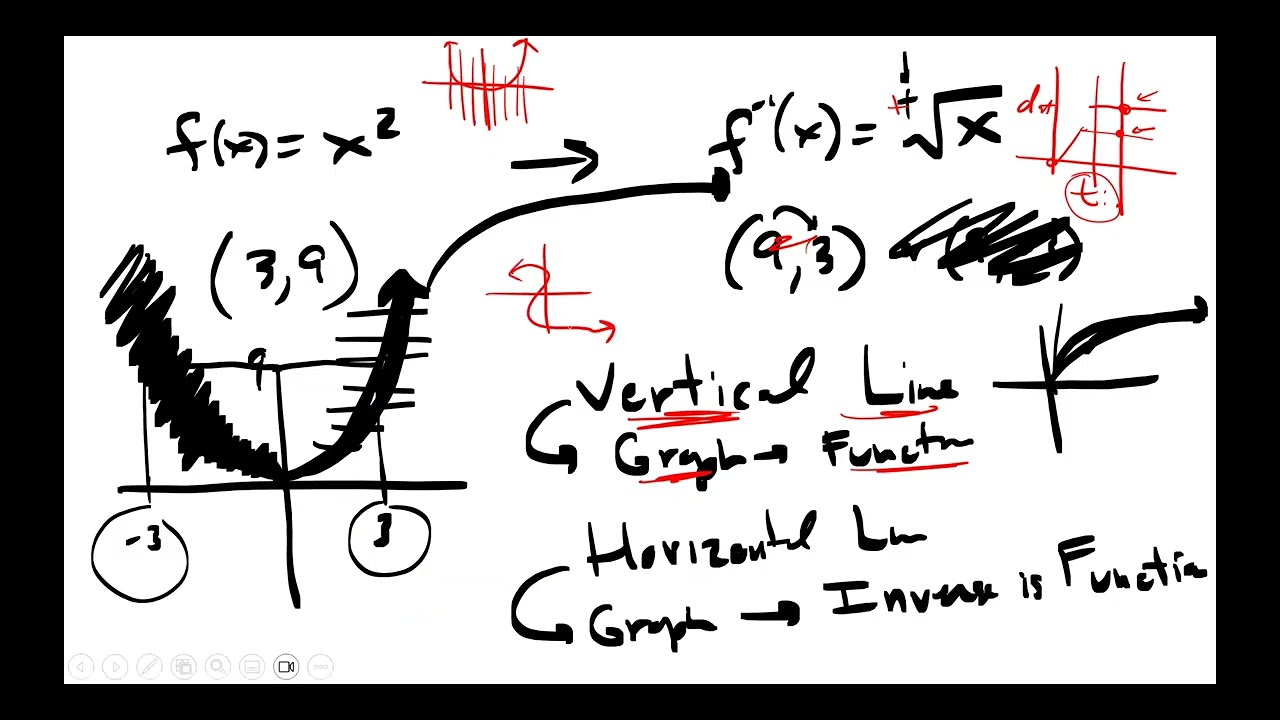 f(x) = x²
→ f⁻¹(x) = +√x
(3,9)
(9,3)
9
-3
3
t
Vertical Line
Graph → Function
Horizontal Line
Graph → Inverse is Function